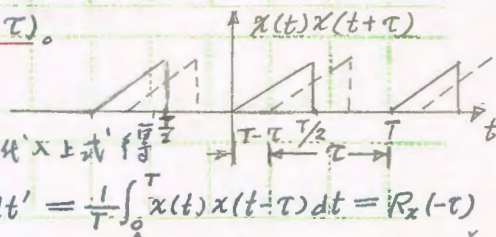 τ)。
x(t)x(t+τ)
T/2
T-τ T/2 T t
τ
代入上式得
dt' = 1/T ∫₀ᵀ x(t)x(t-τ)dt = Rₓ(-τ)